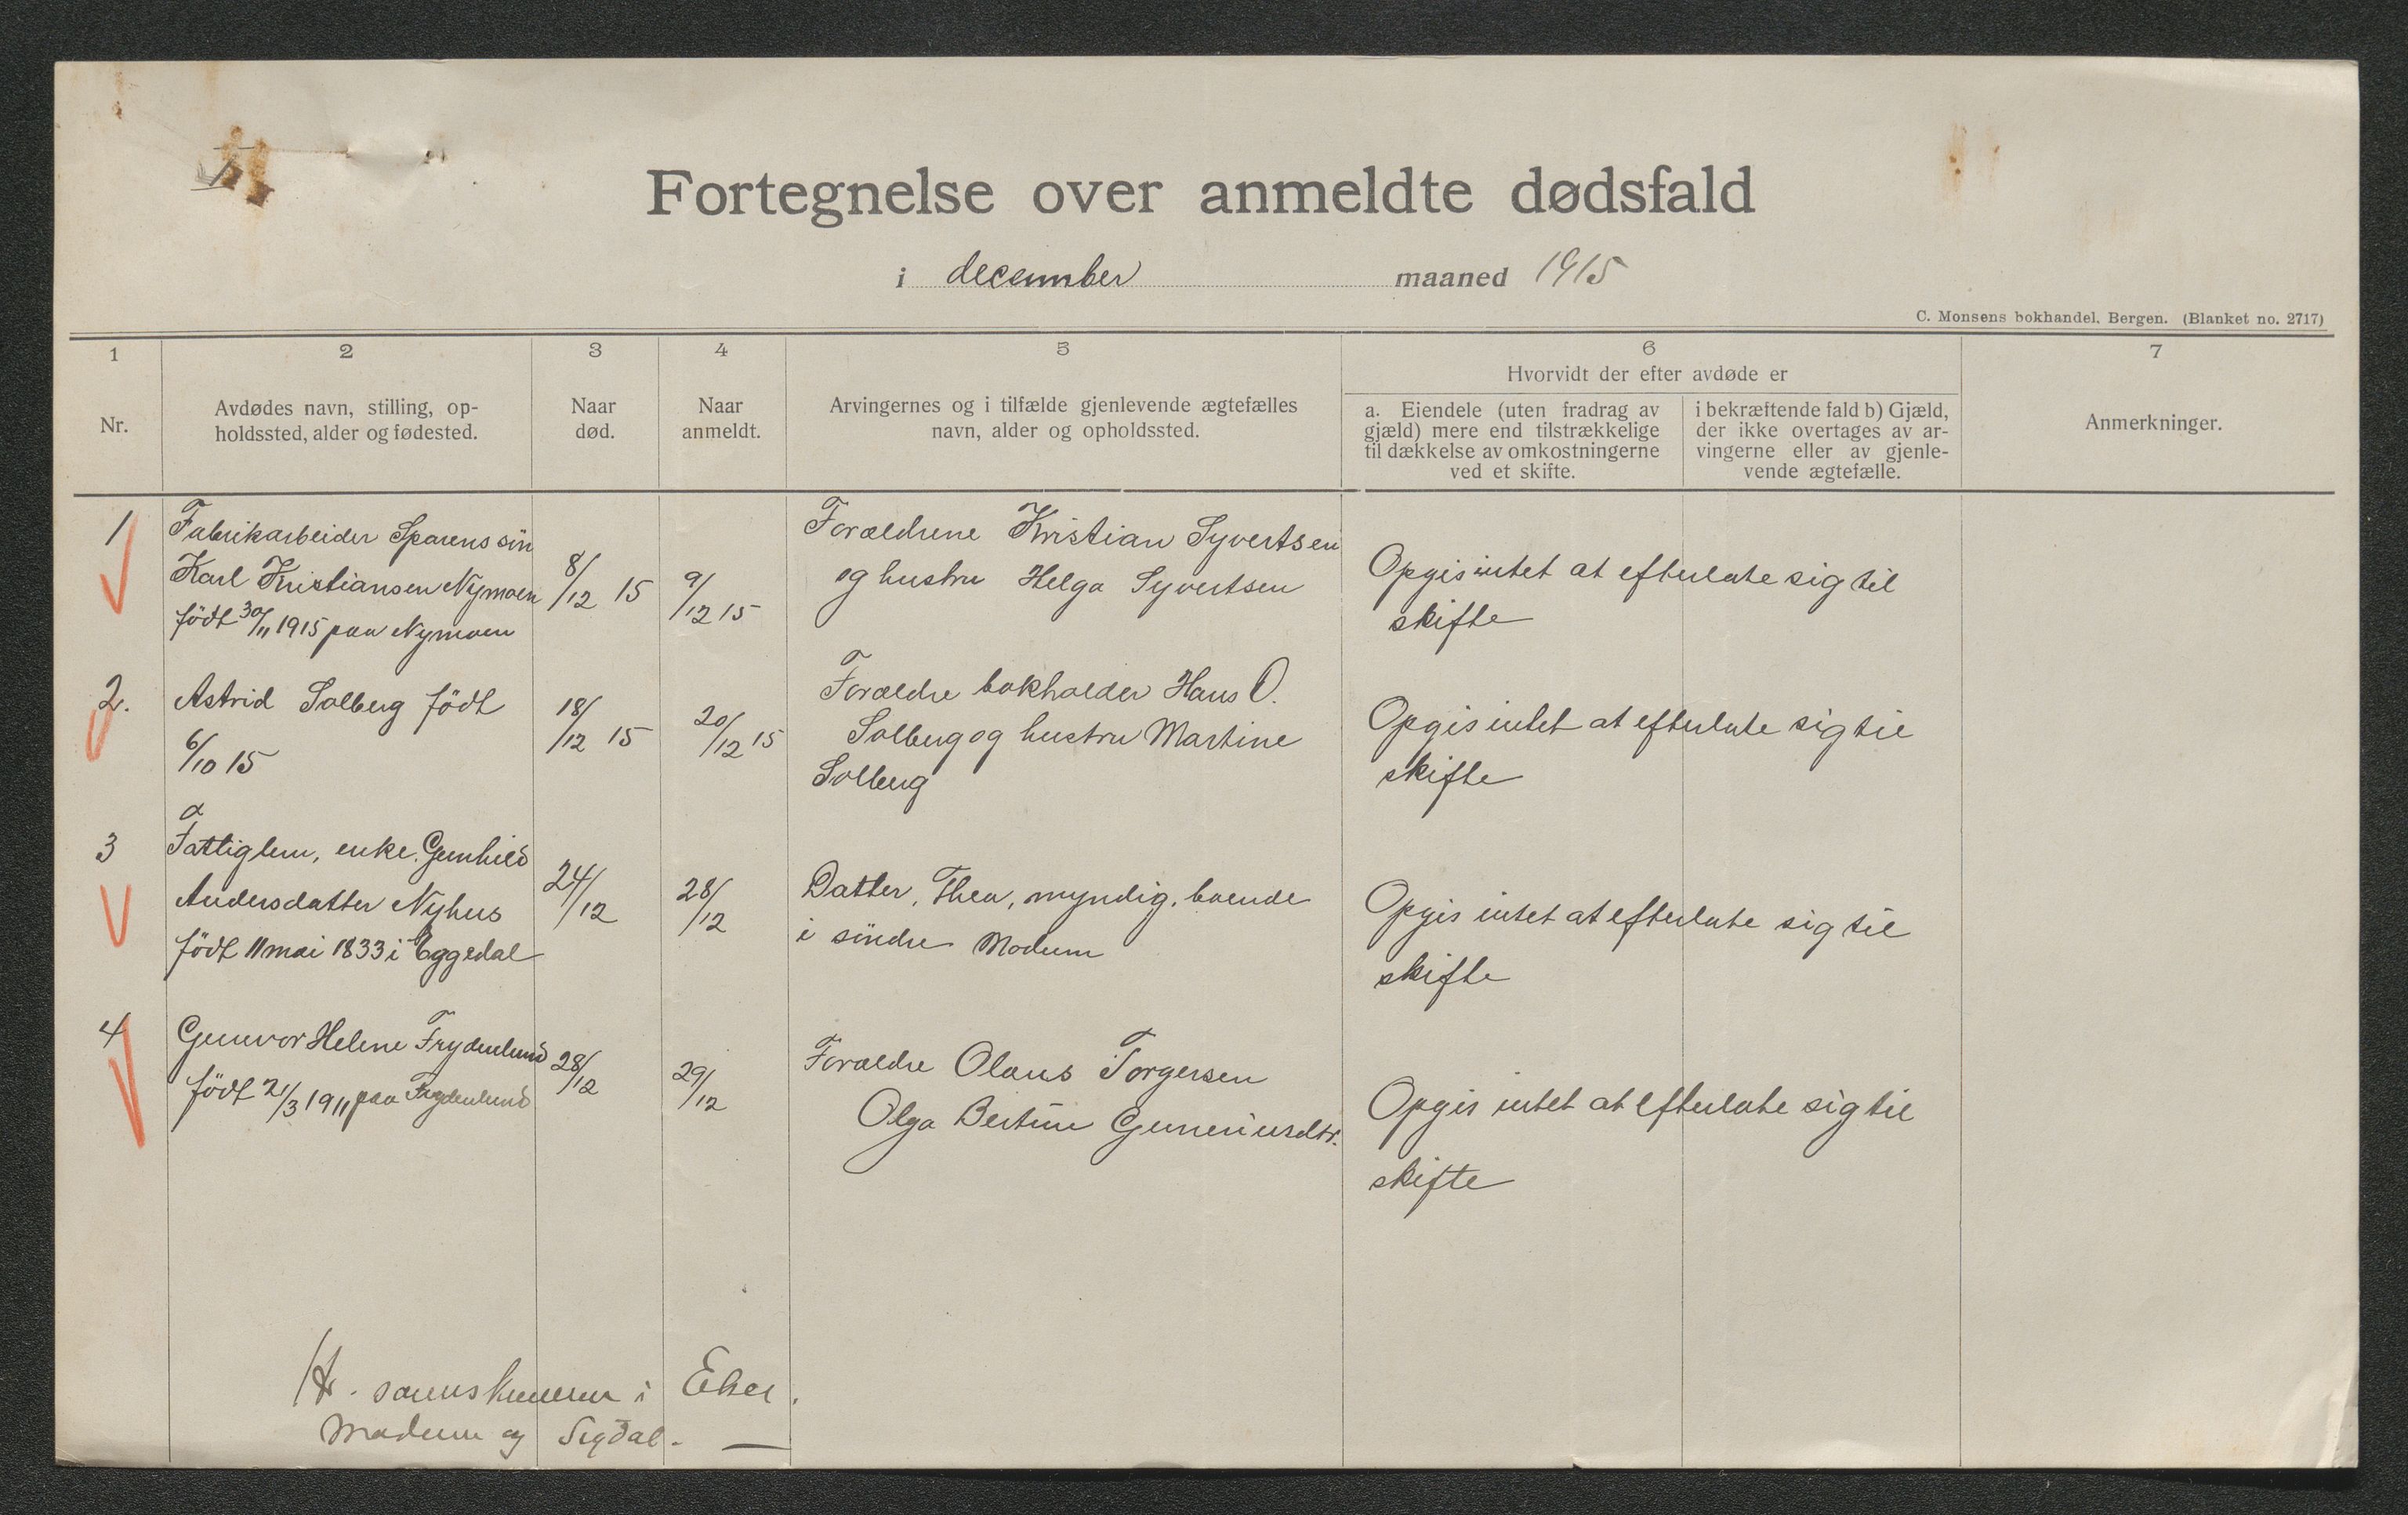 Fortegnelse over anmeldte dødsfald
i december maaned 1915
C. Monsens bokhandel, Bergen. (Blanket no. 2717)
1 2 3 4 5 6 7
Hvorvidt der efter avdøde er
Nr.
Avdødes navn, stilling, op-
holdssted, alder og fødested.
Naar
død.
Naar
anmeldt.
Arvingernes og i tilfælde gjenlevende ægtefælles
navn, alder og opholdssted.
a. Eiendele (uten fradrag av
gjæld) mere end tilstrækkelige
til dækkelse av omkostningerne
ved et skifte.
i bekræftende fald b) Gjæld,
der ikke overtages av ar-
vingerne eller av gjenle-
vende ægtefælle.
Anmerkninger.
1
Fabrikarbeider Sparens sön
Karl Kristiansen Nymoen
födt 30/11 1915 paa Nymoen
8/12 15
9/12 15
Forældrene Kristian Syvertsen
og hustru Helga Syvertsen
Opgis intet at efterlate sig til
skifte
2.
Astrid Solberg födt
6/10 15
18/12 15
20/12 15
Forældre bokholder Hans O.
Solberg og hustru Martine
Solberg
Opgis intet at efterlate sig til
skifte
3
Fattiglem, enke. Gunhild
Andersdatter Nyhus
födt 11 mai 1833 i Eggedal
24/12
28/12
Datter, Thea, myndig, boende
i söndre Modum
Opgis intet at efterlate sig til
skifte
4
Gunvor Helene Frydenlund
födt 21/3 1911 paa Frydenlund
28/12
29/12
Forældre Olaus Torgersen
Olga Bertine Guneriusdtr.
Opgis intet at efterlate sig til
skifte
Hr. sorenskriveren i Eker,
Modum og Sigdal. —